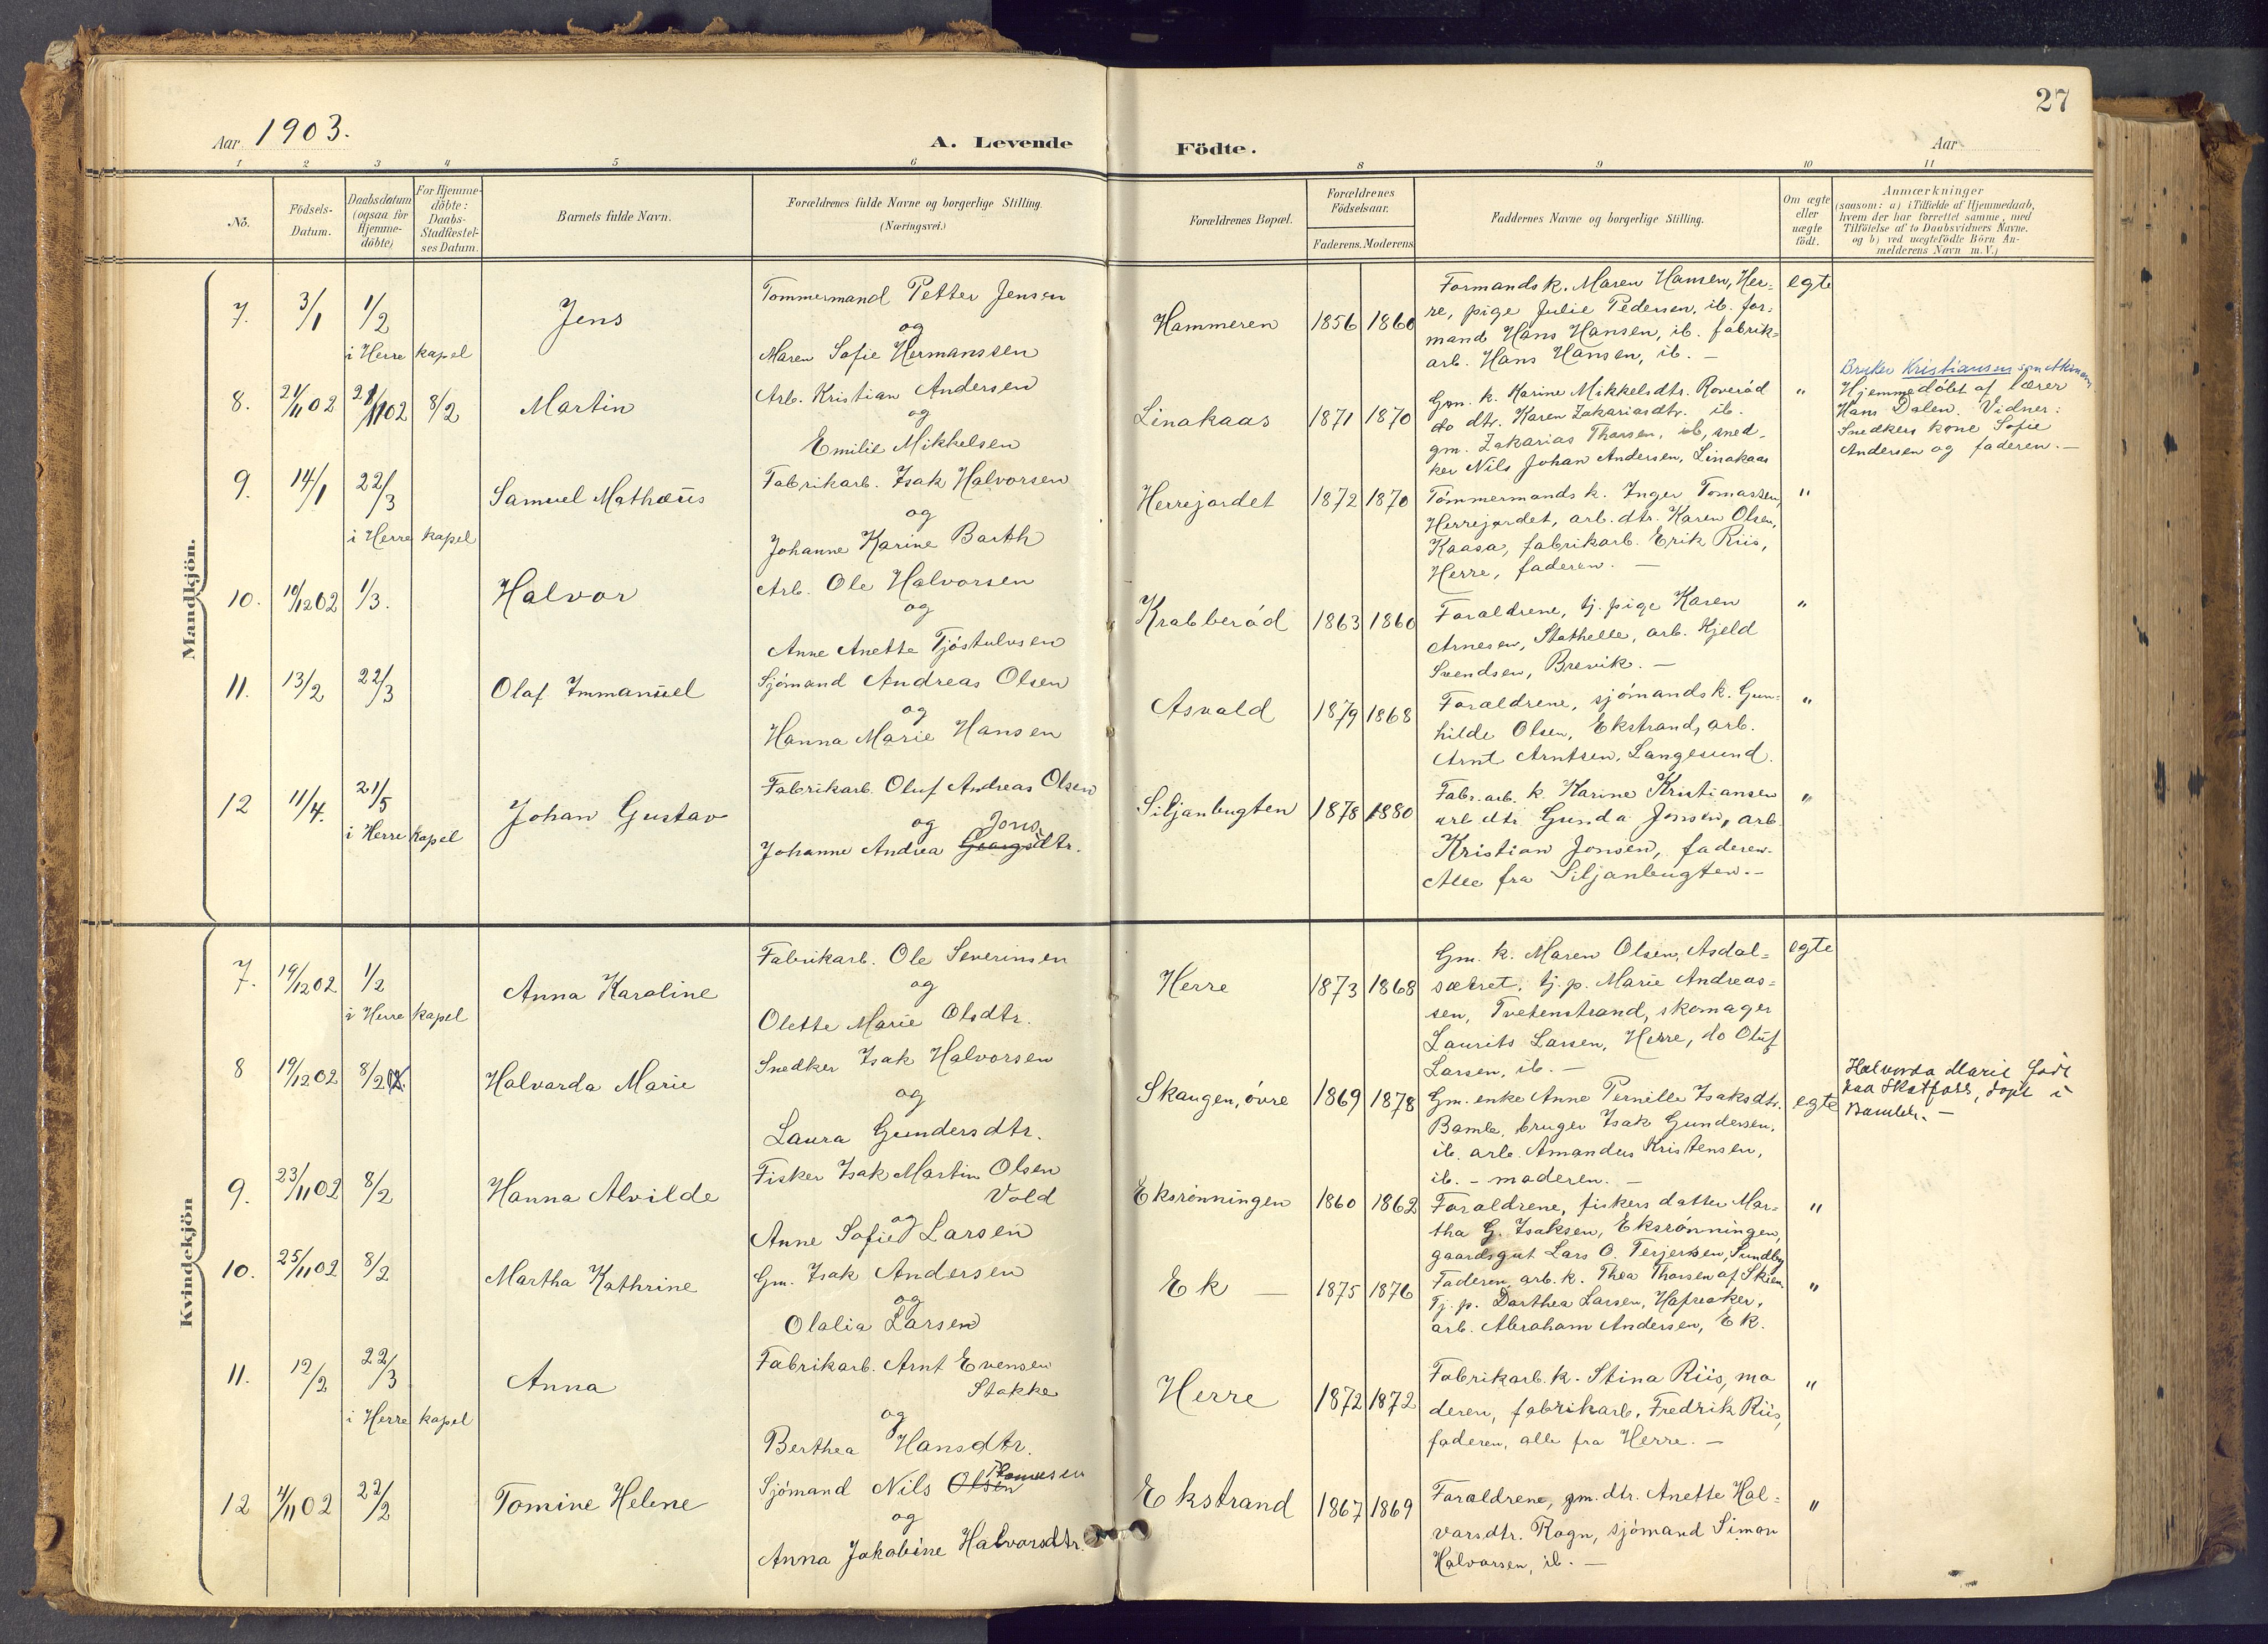 27
Aar 1903.
A. Levende Födte.
Aar
1 2 3 4 5 6 8 9 10 11
No.
Födsels-Datum.
Daabsdatum (ogsaa for Hjemme-döbte)
For Hjemme-döbte: Daabs-Stadfæstel-ses Datum.
Barnets fulde Navn.
Forældrenes fulde Navne og borgerlige Stilling.
(Næringsvei.)
Forældrenes Bopæl.
Forældrenes Födselsaar.
Faderens. Moderens
Faddernes Navne og borgerlige Stilling.
Om ægte eller uægte födt.
Anmærkninger
(saasom: a) i Tilfælde af Hjemmedaab,
hvem der har forrettet samme, med
Tilföielse af to Daabsvidners Navne.
og b) ved uægtefödte Börn An-
melderens Navn m.V.)
Mandkjön.
7. 3/1 1/2
i Herre kapel
Jens
Tommermand Petter Jensen
og
Maren Sofie Hermanssen
Hammeren 1856 1860
Formands k. Maren Hansen, Her=
re, pige Julie Pedersen, ib. for=
mand Hans Hansen, ib. fabrik=
arb. Hans Hansen, ib. –
egte
8. 21/11 02 28/11 02 8/2
Martin
Arb. Kristian Andersen
og
Emilie Mikkelsen
Linakaas 1871 1870
Gm. k. Karine Mikkelsdtr. Roveröd
do dtr. Karen Zakariasdtr. ib.
gm. Zakarias Thorsen, ib, sned-
ker Nils Johan Andersen, Linakaas
"
Bruker Kristiansen som
Hjemmedøbt af lærer
Hans Dalen. Vidner:
Snedkers kone Sofie
Andersen og faderen. –
9. 14/1 22/3
i Herre kapel
Samuel Mathæus
Fabrikarb. Isak Halvorsen
og
Johanne Karine Barth
Herrejordet 1872 1870
Tömmermands k. Inger Tomassen,
Herrejordet, arb. dtr. Karen Olsen,
Kaasa, fabrikarb. Erik Riis,
Herre, faderen. –
"
10. 10/12 02 1/3.
Halvor
Arb. Ole Halvorsen
og
Anne Anette Tjöstulvsen
Krabberöd 1863 1860
Foraldrene, tj. pige Karen
Arnesen, Stathelle, arb. Kjeld
Svendsen, Brevik. –
"
11. 13/2 22/3
Olaf Immanuel
Sjömand Andreas Olsen
og
Hanna Marie Hansen
Asvald 1879 1868
Foraldrene, sjömands k. Gun=
hilde Olsen, Ekstrand, arb.
Arnt Arntsen, Langesund.
"
12 11/4. 21/5
i Herre kapel
Johan Gustav
Fabrikarb. Oluf Andreas Olsen
og Jons
Johanne Andrea Georgsdtr.
Siljanbugten 1878 1880
Fabr. arb. k. Karine Kristiansen
arb. dtr. Gunda Jonsen, arb.
Kristian Jonsen, faderen.
Alle fra Siljanbugten. –
"
Kvindekjön
7. 19/12 02 1/2
i Herre kapel
Anna Karoline
Fabrikarb. Ole Severinsen
og
Olette Marie Olsdtr.
Herre 1873 1868
Gm. k. Maren Olsen, Asdal=
sætret, tj. p. Marie Andreas=
sen, Tvetenstrand, skomager
Laurits Larsen, Herre, do Oluf
Larsen, ib. –
egte
8 19/12 02 8/2
Halvarda Marie
Snedker Isak Halvorsen
og
Laura Gundersdtr.
Skaugen, övre 1869 1878
Gm. enke Anne Pernille Isaksdtr.
Bamle, bruger Isak Gundersen,
ib. arb. Amandus Kristensen,
ib. – moderen. –
egte
Halvorda Marie födt
paa Skotfoss, döpt i
Bamble. –
9. 23/11 02 8/2
Hanna Alvilde
Fisker Isak Martin Olsen
Vold
og
Anne Sofie Larsen
Eksrönningen 1860 1862
Foraldrene, fiskers datter Mar=
tha G. Isaksen, Eksrönningen,
gaardsgut Lars O. Terjersen, Sundby
"
10. 25/11 02 8/2
Martha Kathrine
Gm. Isak Andersen
og
Olalia Larsen
Ek – 1875 1876
Faderen, arb. k. Thea Thorsen af Skien
Tj. p. Dorthea Larsen, Hafreaker,
arb. Abraham Andersen, Ek.
"
11. 12/2 22/3
i Herre kapel
Anna
Fabrikarb. Arnt Evensen
Stokke
og
Berthea Hansdtr.
Herre 1872 1872
Fabrikarb. k. Stina Riis, mo
deren, fabrikarb. Fredrik Riis,
faderen, alle fra Herre. –
"
12 4/11 02 22/2
Tomine Helene
Thomesen
Sjömand Nils Olsen
og
Anna Jakobine Halvorsdtr.
Ekstrand 1867 1869
Foraldrene, gm. dtr. Anette Hal=
vorsdtr. Rogn, sjömand Simon
Halvorsen, ib. –
"